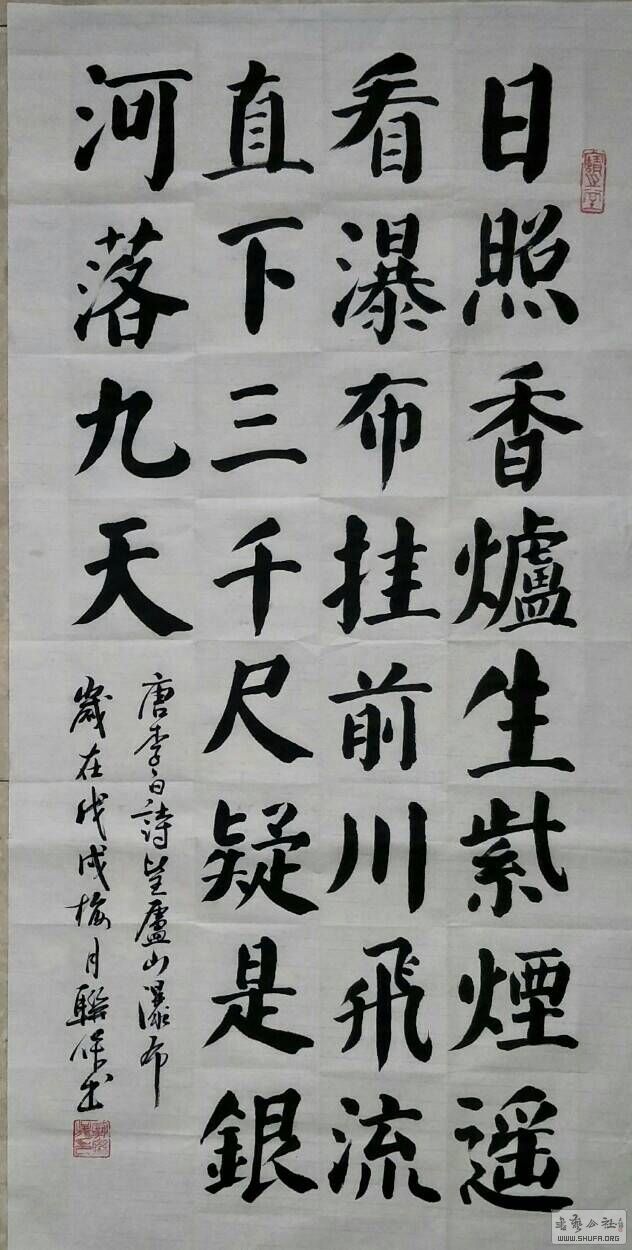 日照香爐生紫煙遥
看瀑布挂前川飛流
直下三千尺疑是銀
河落九天
唐李白詩望廬山瀑布
歲在戊戌梅月聯保书
书艺公社
WWW.SHUFA.ORG